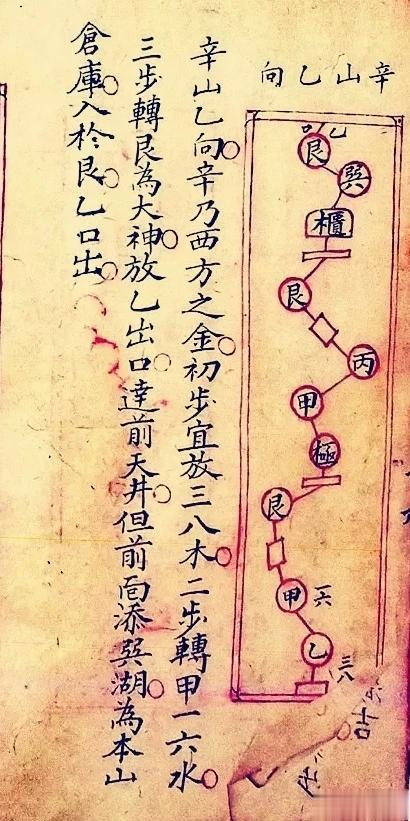 辛山乙向
艮
巽
櫃
艮
丙
甲
極
艮
甲 一六
乙 三八
吉
辛山乙向辛乃西方之金初步宜放三八木二步轉甲一六水
三步轉艮為大神放乙出口達前天井但前面添巽湖為本山
倉庫入於艮乙口出